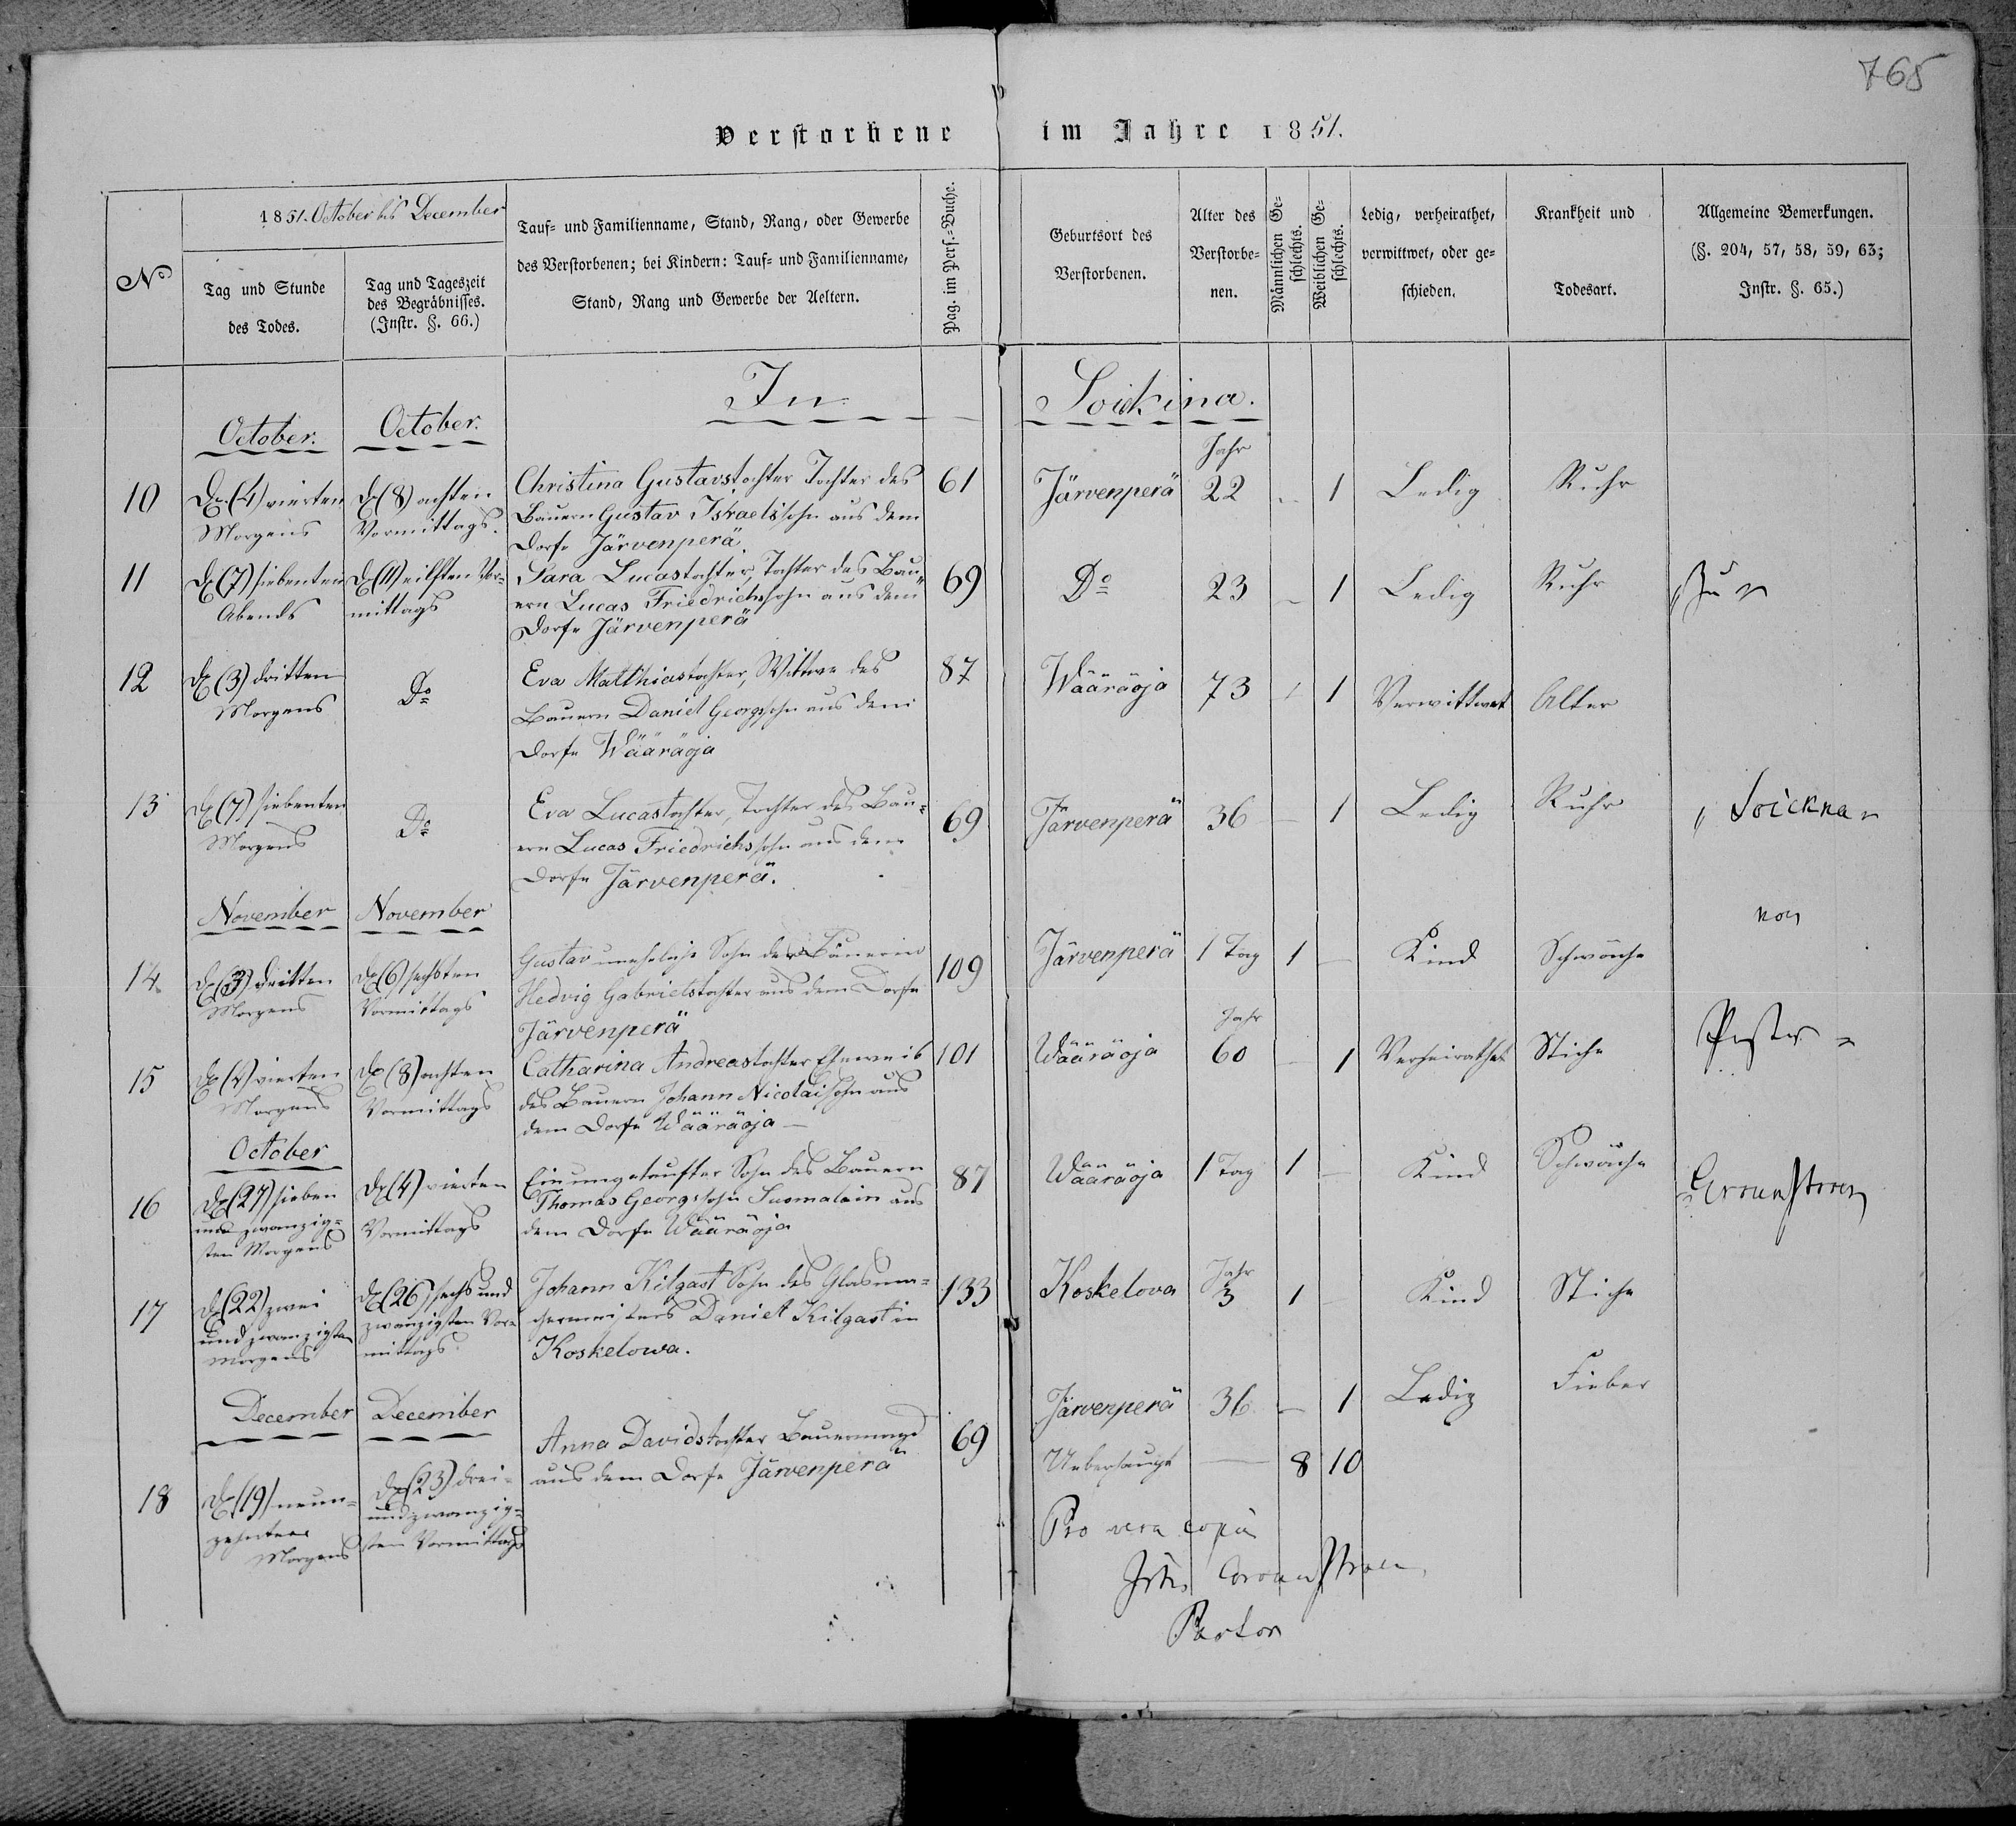 765
Verstorbene im Jahre 1851.
No
1851. October bis December
Tag und Stunde
des Todes.
Tag und Tageszeit
des Begräbnisses.
(Instr. §. 66.)
Tauf- und Familienname, Stand, Rang, oder Gewerbe
des Verstorbenen; bei Kindern: Tauf- und Familienname,
Stand, Rang und Gewerbe der Aeltern.
Pag. im Pers.-Buche.
Geburtsort des
Verstorbenen.
Alter des
Verstorbe-
nen.
Männlichen Ge-
schlechts.
Weiblichen Ge-
schlechts.
Ledig, verheirathet,
verwittwet, oder ge-
schieden.
Krankheit und
Todesart.
Allgemeine Bemerkungen.
(§. 204, 57, 58, 59, 63;
Instr. §. 65.)
In Soickina.
October. October.
Jahr
10
(4) vierten
Morgens
(8) achten
Vormittags.
Christina Gustavstochter Tochter des
Bauern Gustav Iskaelssohn aus dem
Dorfe Järvenperä
61 Järvenperä 22 - 1 Ledig Ruhr
11
(7) siebenten
Abends
(11) eilften Vor-
mittags
Sara Lucastochter, Tochter des Bau-
ern Lucas Friedrichssohn aus dem
Dorfe Järvenperä
69 Do 23 - 1 Ledig Ruhr
"Zu"
12
(3) dritten
Morgens
Do
Eva Matthiastochter, Wittwe des
Bauern Daniel Georgssohn aus dem
Dorfe Wääräoja
87 Wääräoja 73 - 1 Verwittwet Alter
13
(7) siebenten
Morgens
Do
Eva Lucastochter, Tochter des Bau-
ern Lucas Friedrichssohn aus dem
Dorfe Järvenperä.
69 Järvenperä 36 - 1 Ledig Ruhr
" Soickna "
November November
von
14
(3) dritten
Morgens
(6) sechsten
Vormittags
Gustav uneheliche Sohn der Bäuerin
Hedvig Gabrielstochter aus dem Dorfe
Järvenperä
109 Järvenperä 1 Tag 1 - Kind Schwäche
Jahr
15
(4) vierten
Morgens
(8) achten
Vormittags
Catharina Andreastochter Eheweib
des Bauern Johann Nicolaisohn aus
dem Dorfe Wääräoja —
101 Wääräoja 60 - 1 Verheirathet Stiche
Pastor
October
16
(27) sieben
und zwanzig-
sten Morgens
(4) vierten
Vormittags
Ein ungetaufter Sohn des Bauern
Thomas Georgssohn Suomalain aus
dem Dorfe Wääräoja
87 Wääräoja 1 Tag 1 - Kind Schwäche
17
(22) zwei
und zwanzigsten
Morgens
(26) sechs und
zwanzigsten Vor-
mittags
Johann Kilgast Sohn des Glasma-
chermeisters Daniel Kilgast in
Koskelowa.
133 Koskelova Jahr
3 1 - Kind Stiche
December December
18
(19) neun-
zehnten
Morgens
(23) drei-
undzwanzig-
sten Vormittags
Anna Davidstochter Bauermagd
aus dem Dorfe Järvenperä
69 Järvenperä 36 - 1 Ledig Fieber
Ueberhaupt — 8 10
Pro vera copia
Pastor